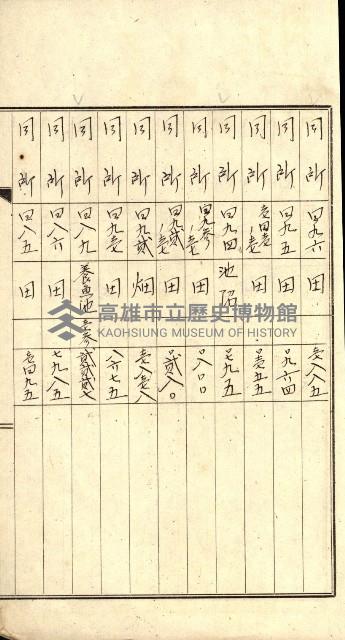 同所 四九六 田 壱八八五
同所 四九五 田 〇九六四
同所 壱四壱ノ壱 田 〇壱五五
同所 四九四 池沼 〇七九五
同所 四九参ノ壱 田 〇八〇〇
同所 四九弐ノ壱 田 〇弐八〇
同所 四九弐 畑 壱八壱八
同所 四九壱 田 八六七五
同所 四八九 養魚池 壱参弐弐弐七
同所 四八六 田 七九八五
同所 四八五 田 壱四九五
高雄市立歷史博物館
KAOHSIUNG MUSEUM OF HISTORY